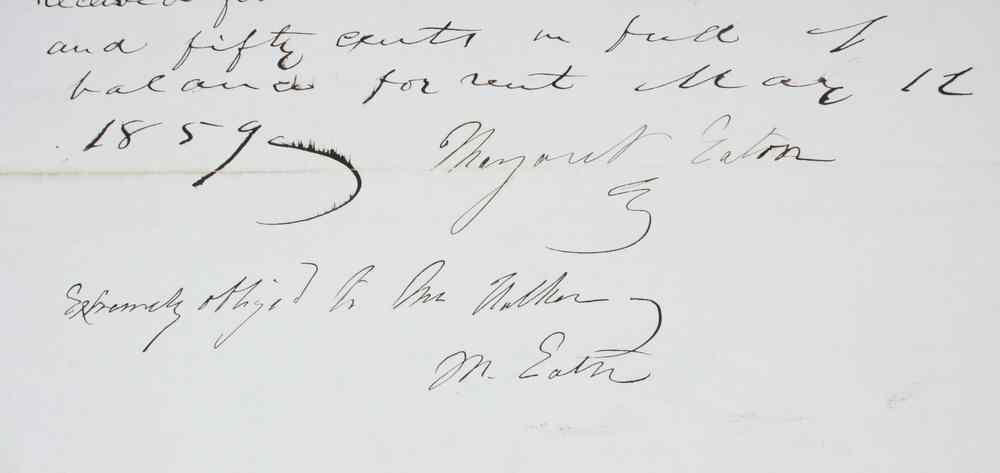 received for
and fifty cents in full of
balance for rent May 12
1859
Margaret Eaton
Extremely obliged to Mr Walker
M. Eaton